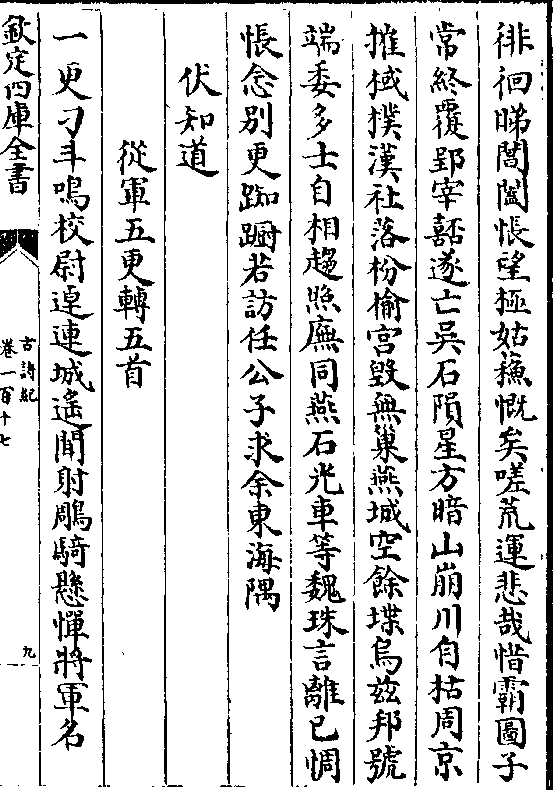 徘徊睇閶闔悵望極姑蘓慨矣嗟荒運悲哉惜霸圖子
常終覆郢宰嚭遂亡吳石隕星方暗山崩川自枯周京
摧棫樸漢社落枌榆宮毀無巢燕城空餘堞烏兹邦號
端委多士自相趨照廡同燕石光車等魏珠言離已惆
悵念別更踟蹰若訪任公子求余東海隅
伏知道
從軍五更轉五首
一更刁斗鳴校尉逴連城遙聞射鵰騎懸憚將軍名
欽定四庫全書
古詩紀
卷一百十七
九